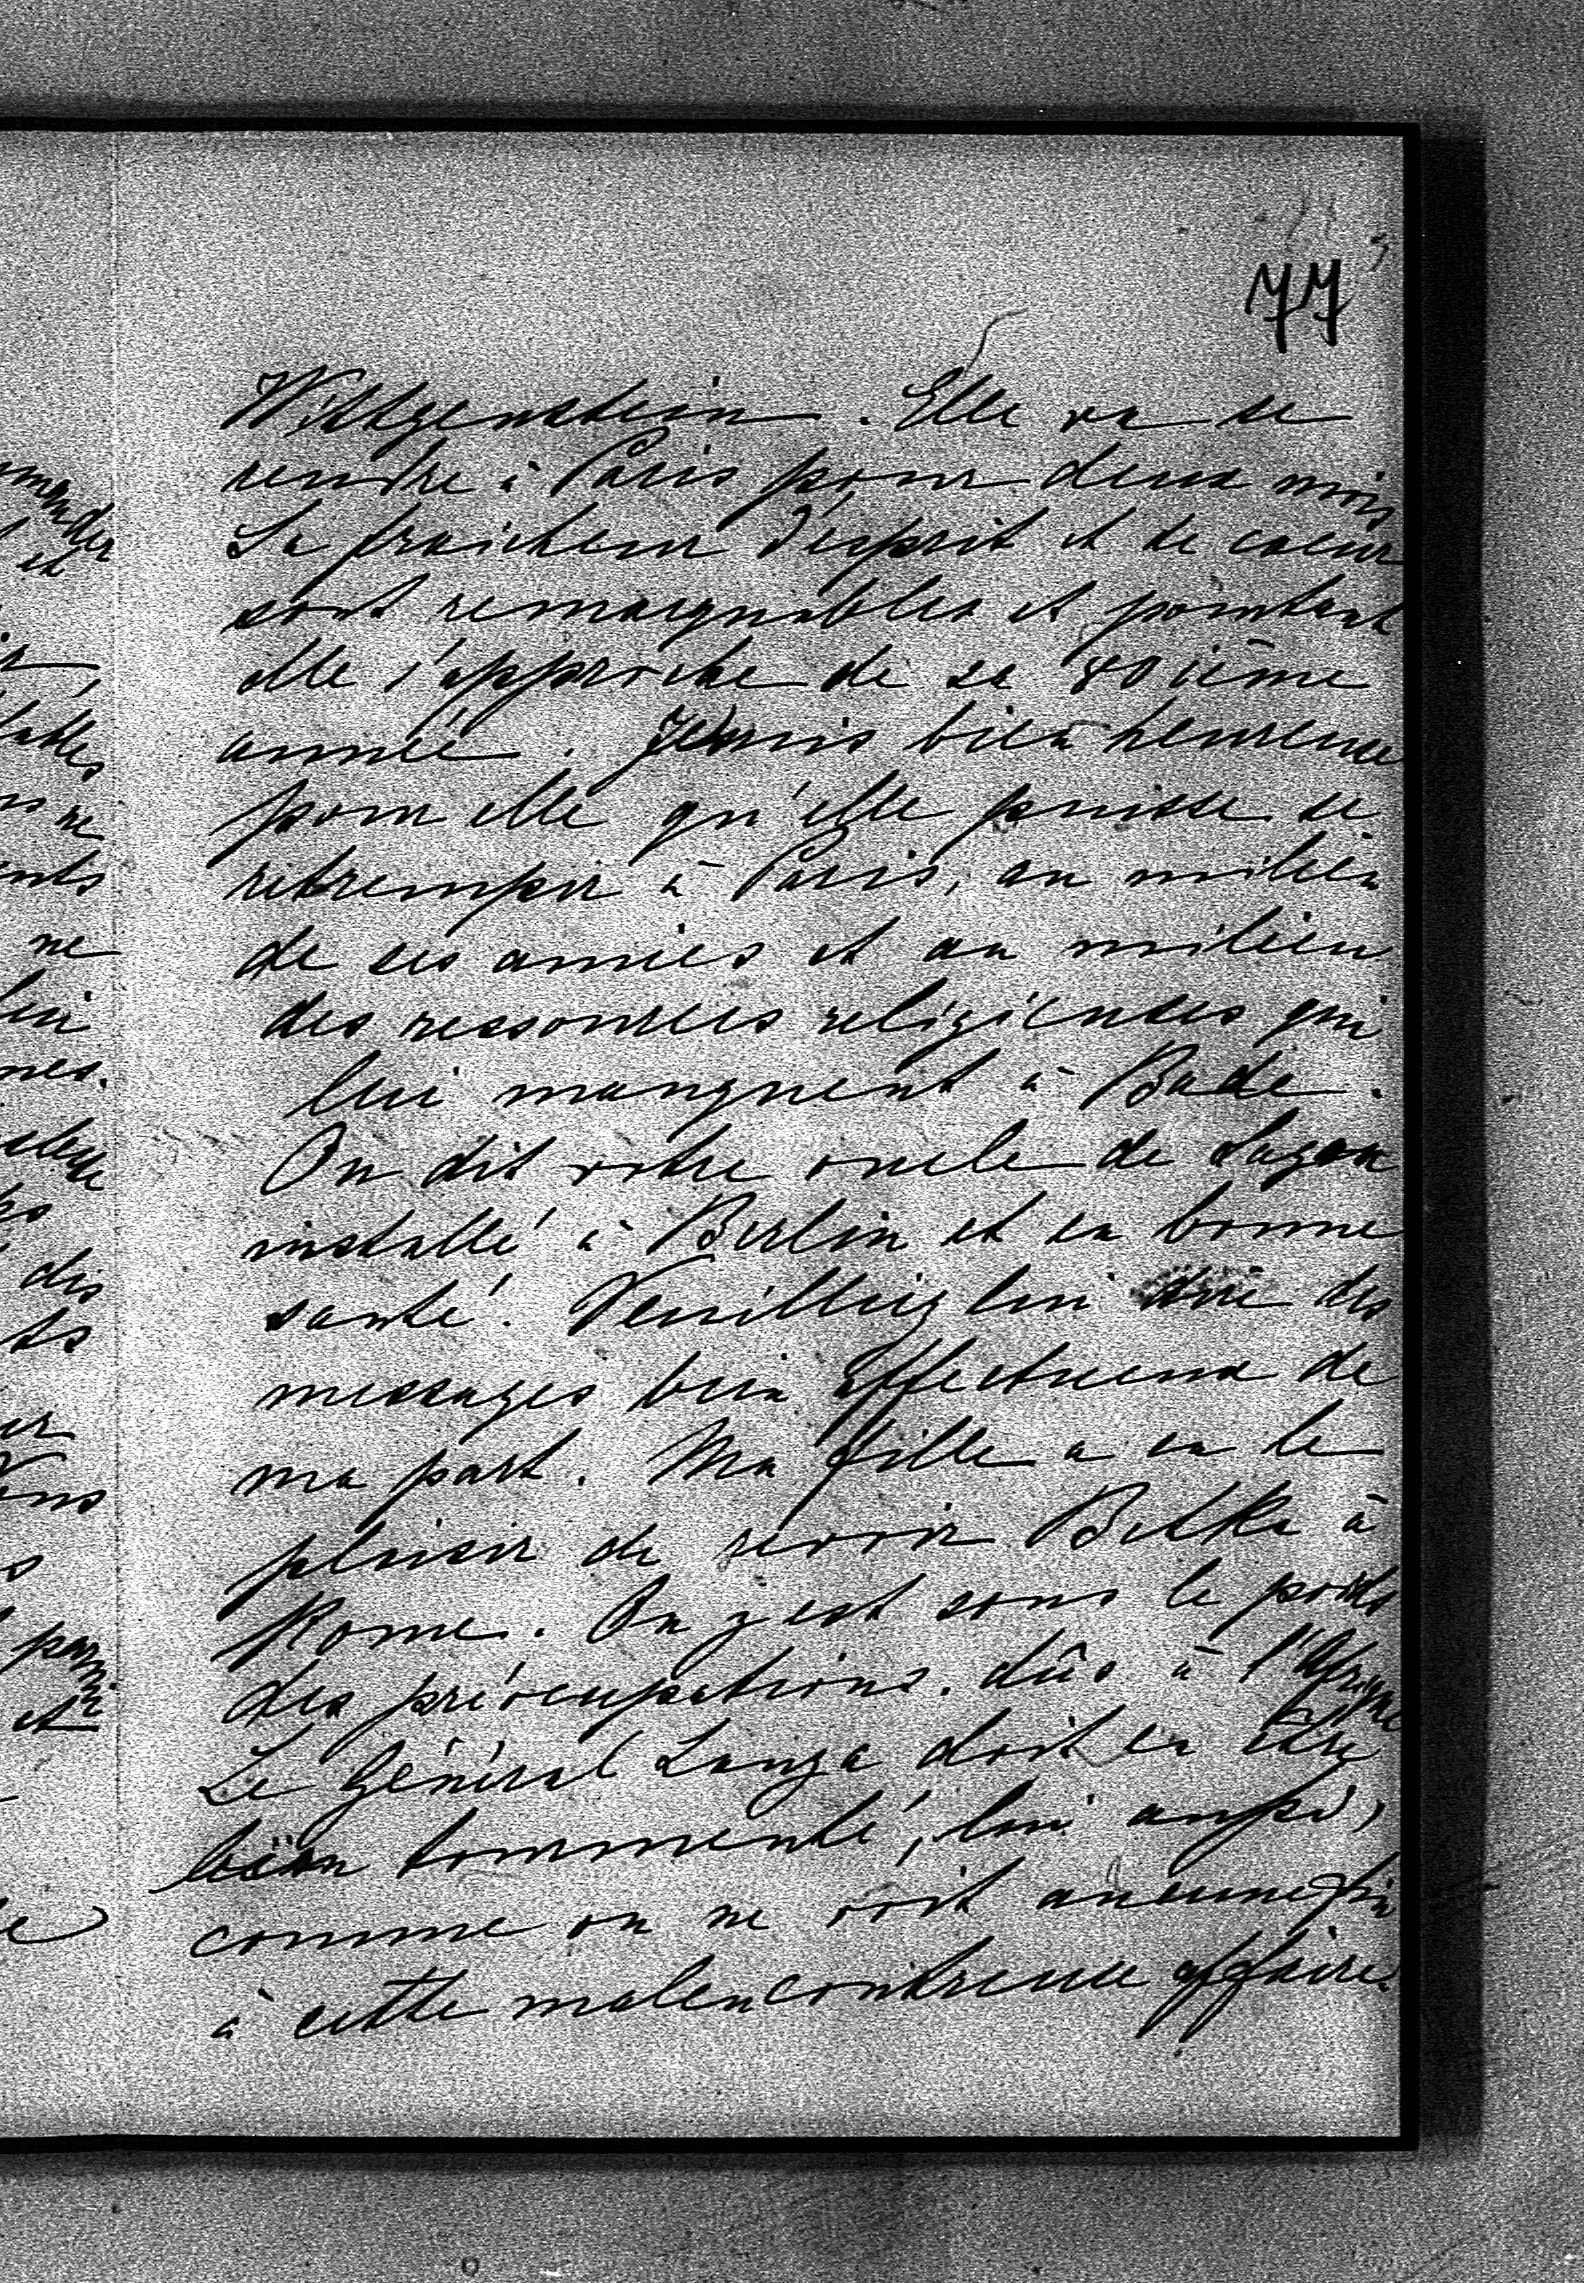 77
Wittgenstein. Elle va se
rendre à Paris pour deux mois
Sa fraicheur d'esprit et de coeur
sont remarquables et pourtant
elle s'approche de sa 80ième
année. Je suis bien heureuse
pour elle qu'elle puisse se
retremper à Paris, au milieu
de ses amies et au milieu
des ressources religieuses qui
lui manquent à Bade.
On dit votre oncle de Sagan
installé à Berlin et en bonne
santé. Veuillez lui dire des
messages bien affectueux de
ma part. Ma fille a eu le
plaisir de revoir Betka à
Rome. On y est sous le poids
des préocupations dûs à l'Afrique
Le Général Lanza doit en être
bien tourmenté, lui aussi,
comme on ne voit aucune fin
à cette malencontreuse affaire.